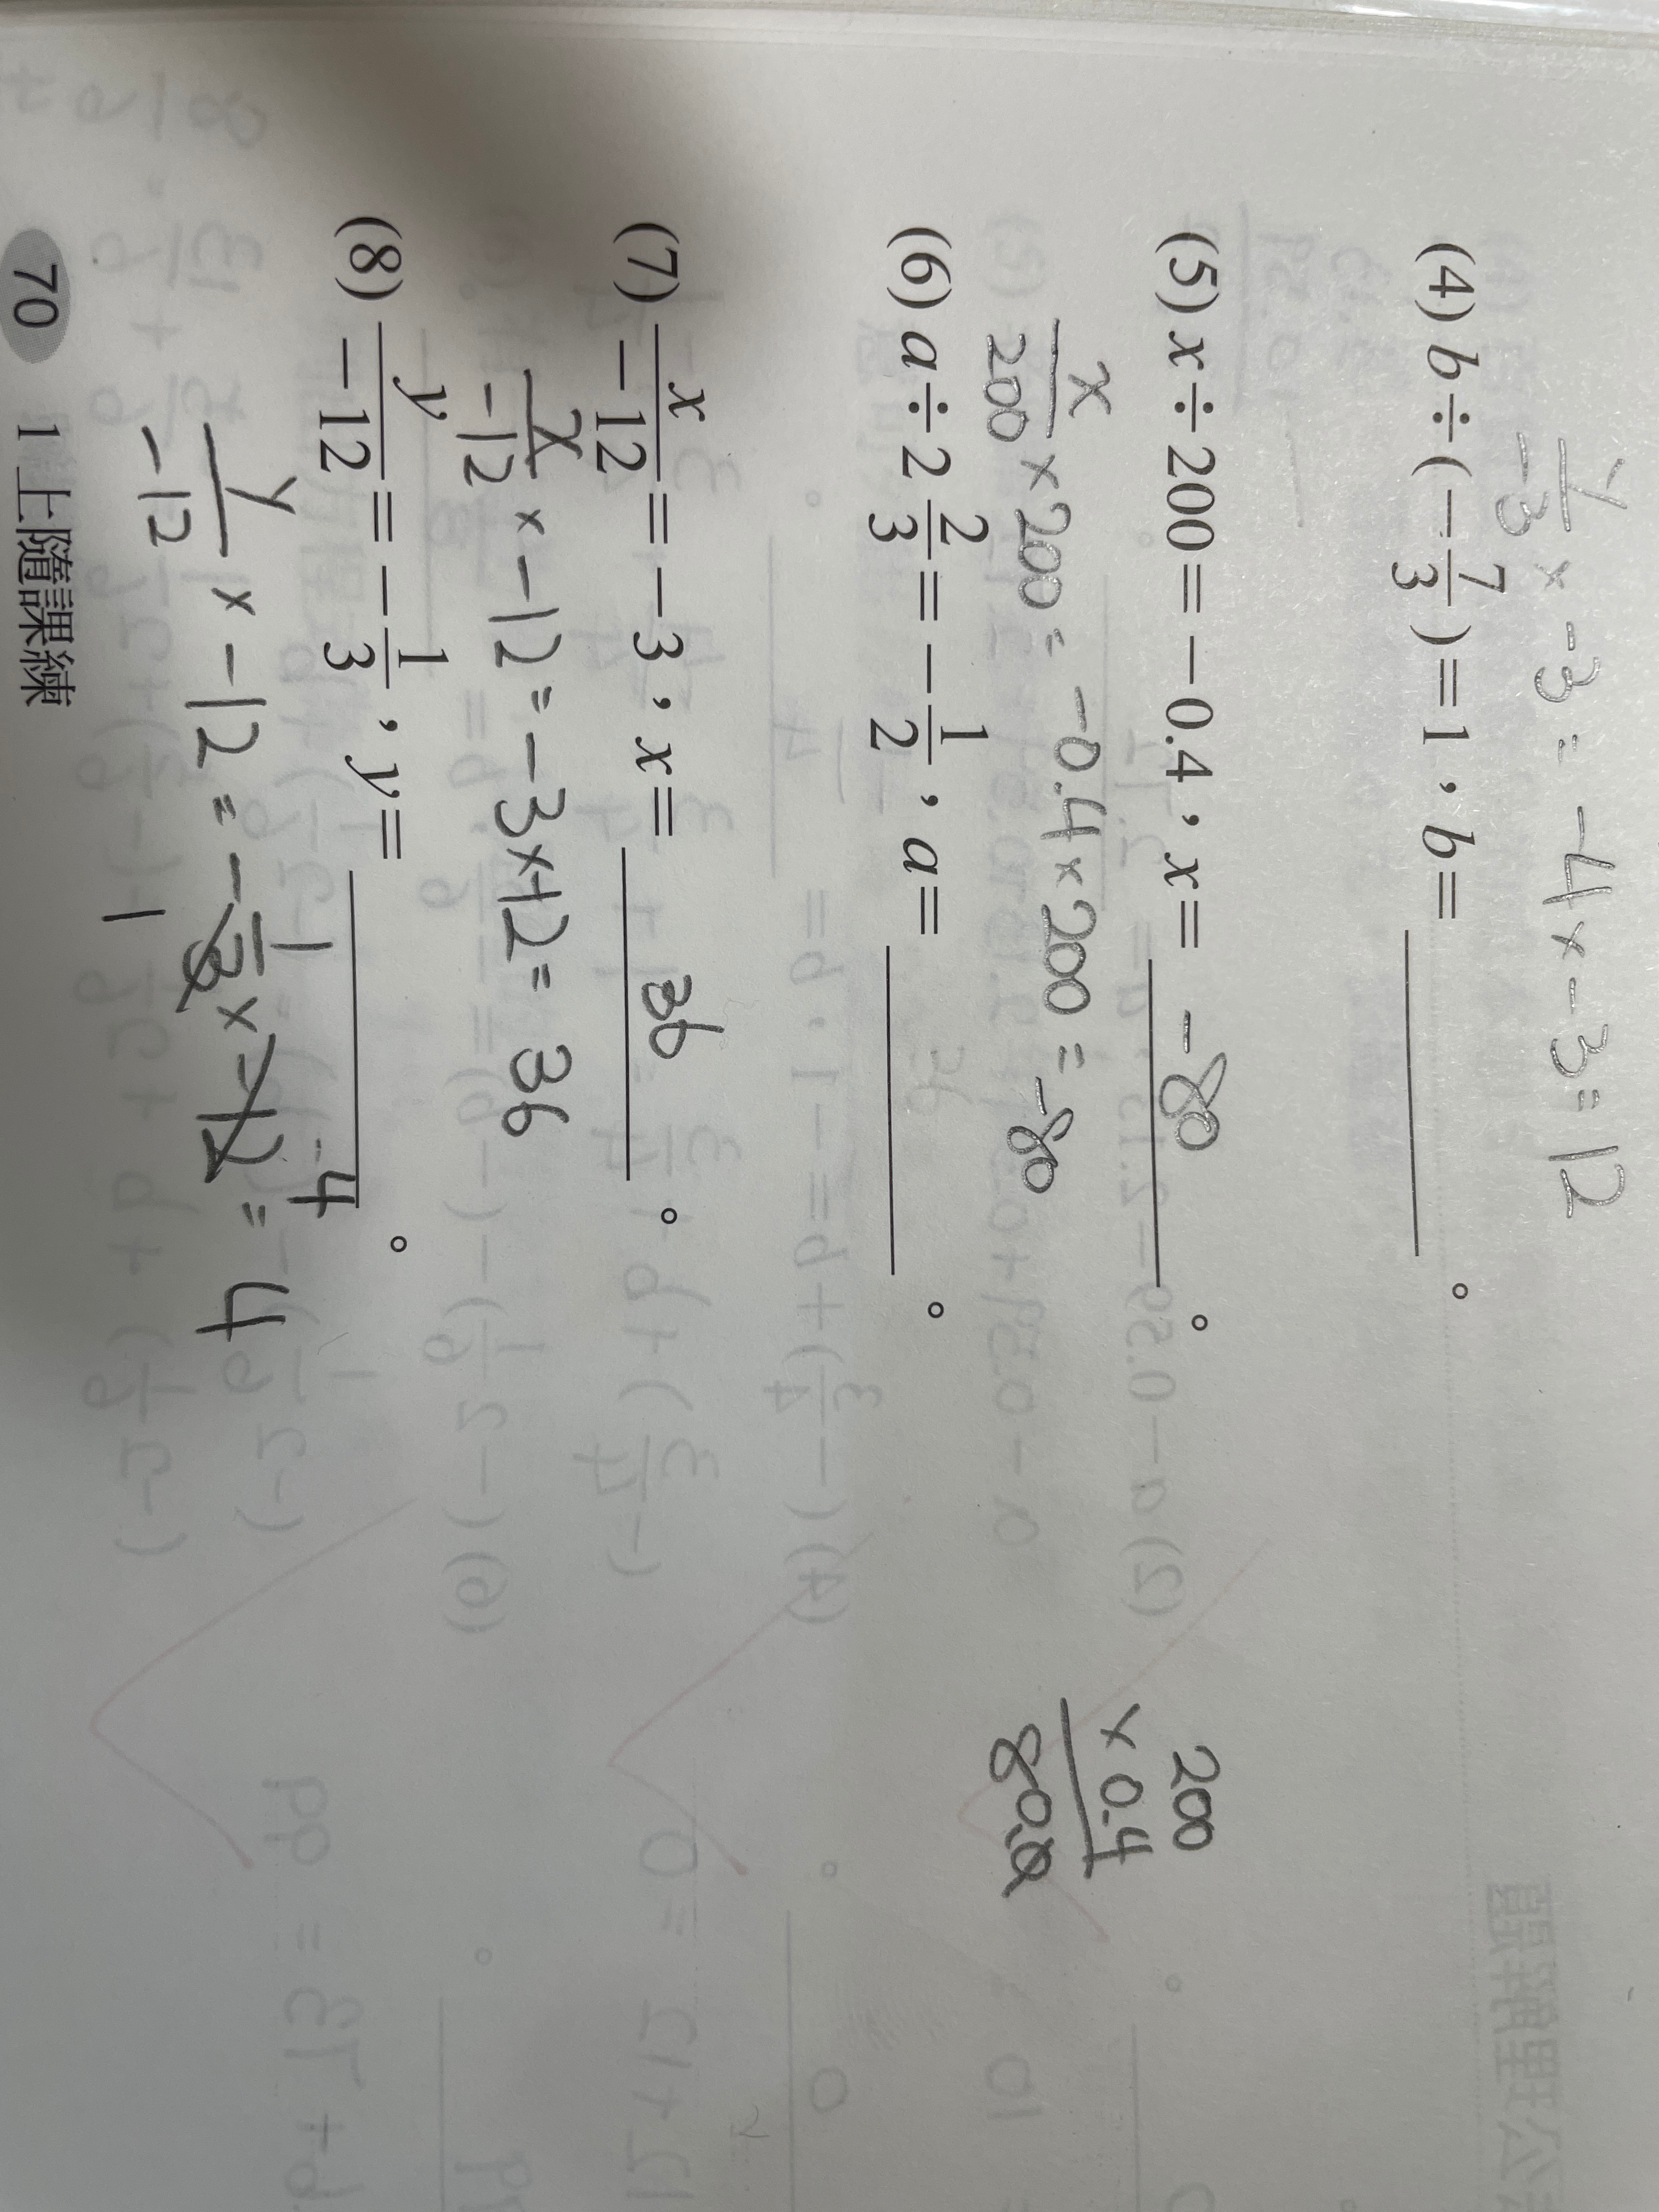 y/-3 × -3 = -4 × -3 = 12
(4) b ÷ (-7/3) = 1，b = ______。
(5) x ÷ 200 = -0.4，x = -80。
x/200 × 200 = -0.4 × 200 = -80
200
× 0.4
80.0
(6) a ÷ 2 2/3 = -1/2，a = ______。
(7) x/-12 = -3，x = 36。
x/-12 × -12 = -3 × -12 = 36
(8) y/-12 = -1/3，y = -4。
y/-12 × -12 = -1/3 × -12 = 4
1
70 1上隨課練